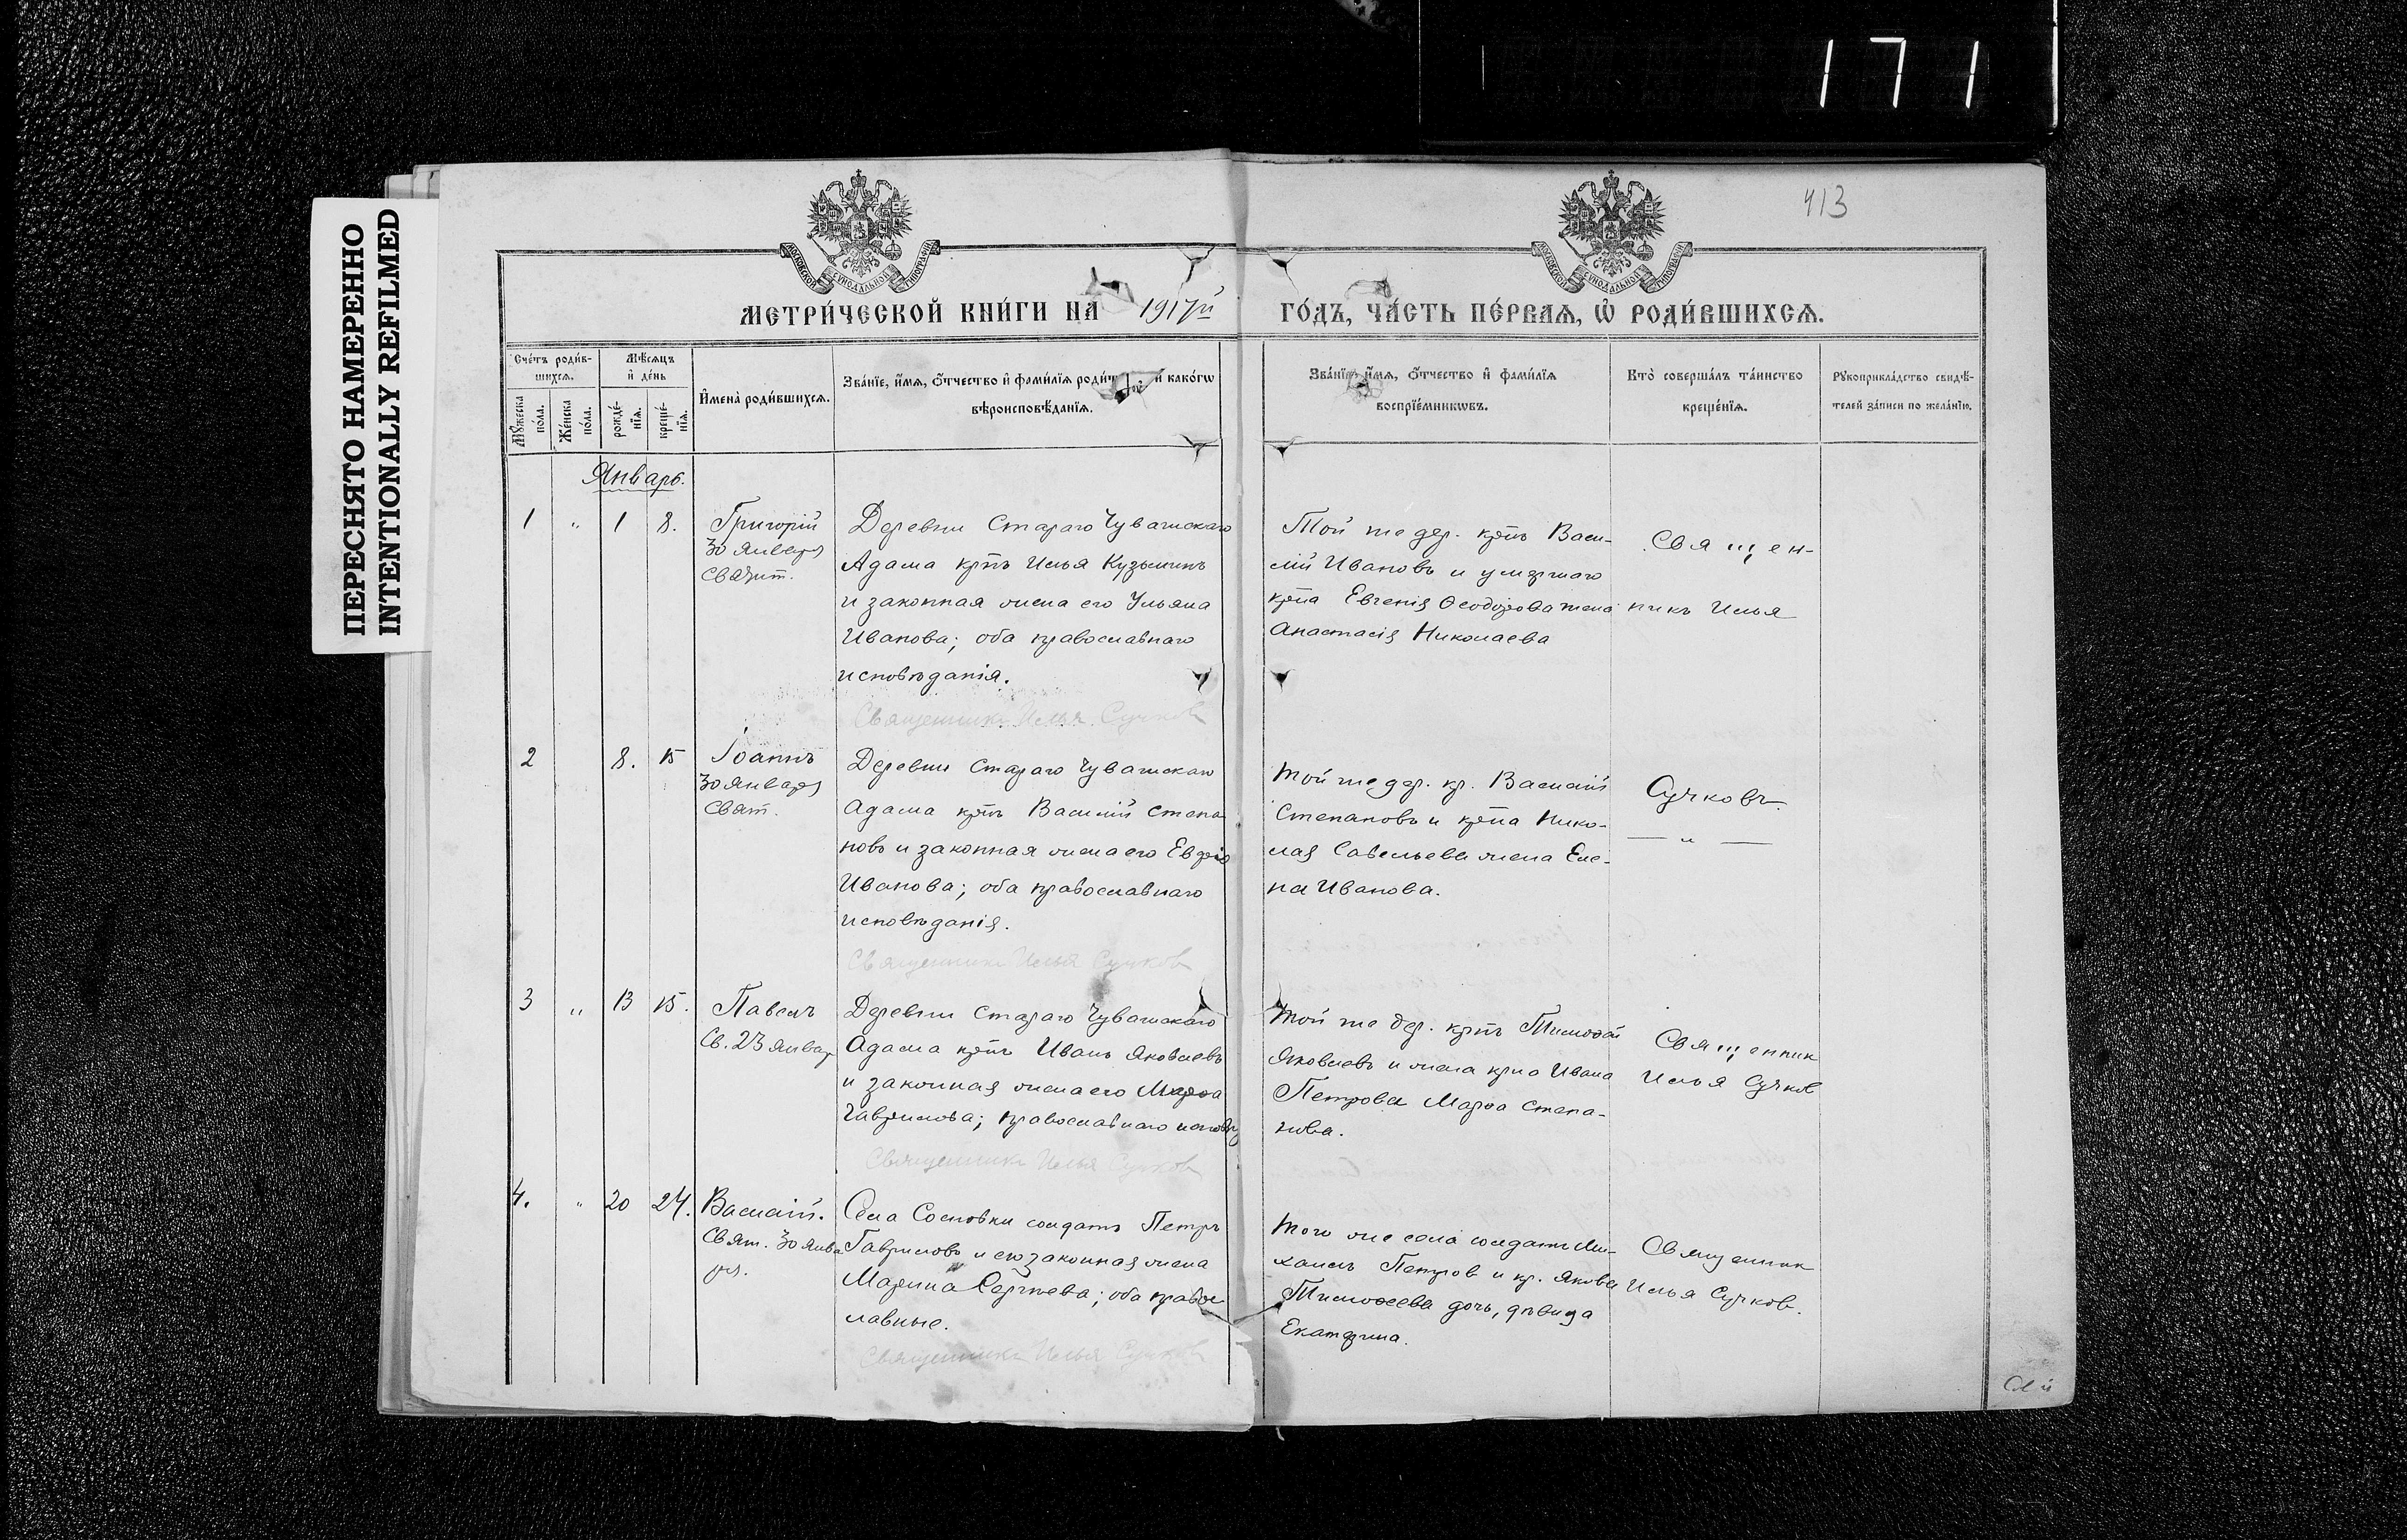 171
ПЕРЕСНЯТО НАМЕРЕННО
INTENTIONALLY REFILMED
413
МОСКОВСКОЙ СУНОДАЛЬНОЙ ТИПОГРАФІИ
МОСКОВСКОЙ СУНОДАЛЬНОЙ ТИПОГРАФІИ
МЕТРИ́ЧЕСКОЙ КНИ́ГИ НА 1917й ГО́ДЪ, ЧА́СТЬ ПЕ́РВАѦ, Ѡ҆ РОДИ́ВШИХСѦ.
Сче́тъ роди́в-
шихсѧ.
Мѣ́сѧцъ
и҆ де́нь
Мꙋ́жеска
по́ла.
Же́нска
по́ла.
рожде́-
нїѧ.
креще́-
нїѧ.
И҆мена̀ роди́вшихсѧ.
Зва́нїе, и҆́мѧ, ѻ҆́тчество и҆ фами́лїѧ роди́т и҆ како́гѡ
вѣроисповѣ́данїѧ.
Зва́нїе, и҆́мѧ, ѻ҆́тчество и҆ фами́лїѧ
воспрїе́мникѡвъ.
Кто̀ соверша́лъ та́инство
креще́нїѧ.
Рꙋкоприкла́дство свидѣ́-
телей за́писи по жела́нїю.
Январь.
1 " 1 8.
Григорій
30 января
Святит.
Деревни Стараго Чувашскаго
Адама крт-нъ Илья Кузьминъ
и законная жена его Ульяна
Иванова; оба православнаго
исповѣданія.
Священникъ Илья Сучков
Той же дер. крнъ Васи-
лій Ивановъ и умершаго
крна Евгенія Ѳеодорова жена
Анастасія Николаева
Священ-
никъ Илья
2 8. 15
Іоаннъ
30 января
Свят.
Деревни Стараго Чувашскаго
Адама крнъ Василій Степа
новъ и законная жена его
Иванова; оба православнаго
исповѣданія.
Священникъ Илья Сучков
Той же дер. кр. Василій
Степановъ и крна Нико-
лая Савельева жена Еле-
на Иванова.
Сучковъ.
— " —
3 " 13 15.
Павелъ
Св. 23 январ
Деревни Стараго Чувашскаго
Адама крнъ Иванъ Яковлевъ
и законная жена его Марѳа
Гаврилова; православнаго исповѣд
Священникъ Илья Сучков
Той же дер. крнъ Тимоѳей
Яковлевъ и жена крна Ивана
Петрова Марѳа Степа-
нова.
Священник
Илья Сучков
4. " 20 24.
Василій.
Свят. 30 янва
ря.
Села Сосновки солдатъ Петръ
Гавриловъ и его законная жена
Марина Сергѣева; оба право
славные.
Священникъ Илья Сучков
Того же села солдатъ Ми-
хаилъ Петров и кр. Якова
Тимоѳеева дочь, дѣвица
Екатерина.
Священник
Илья Сучков.